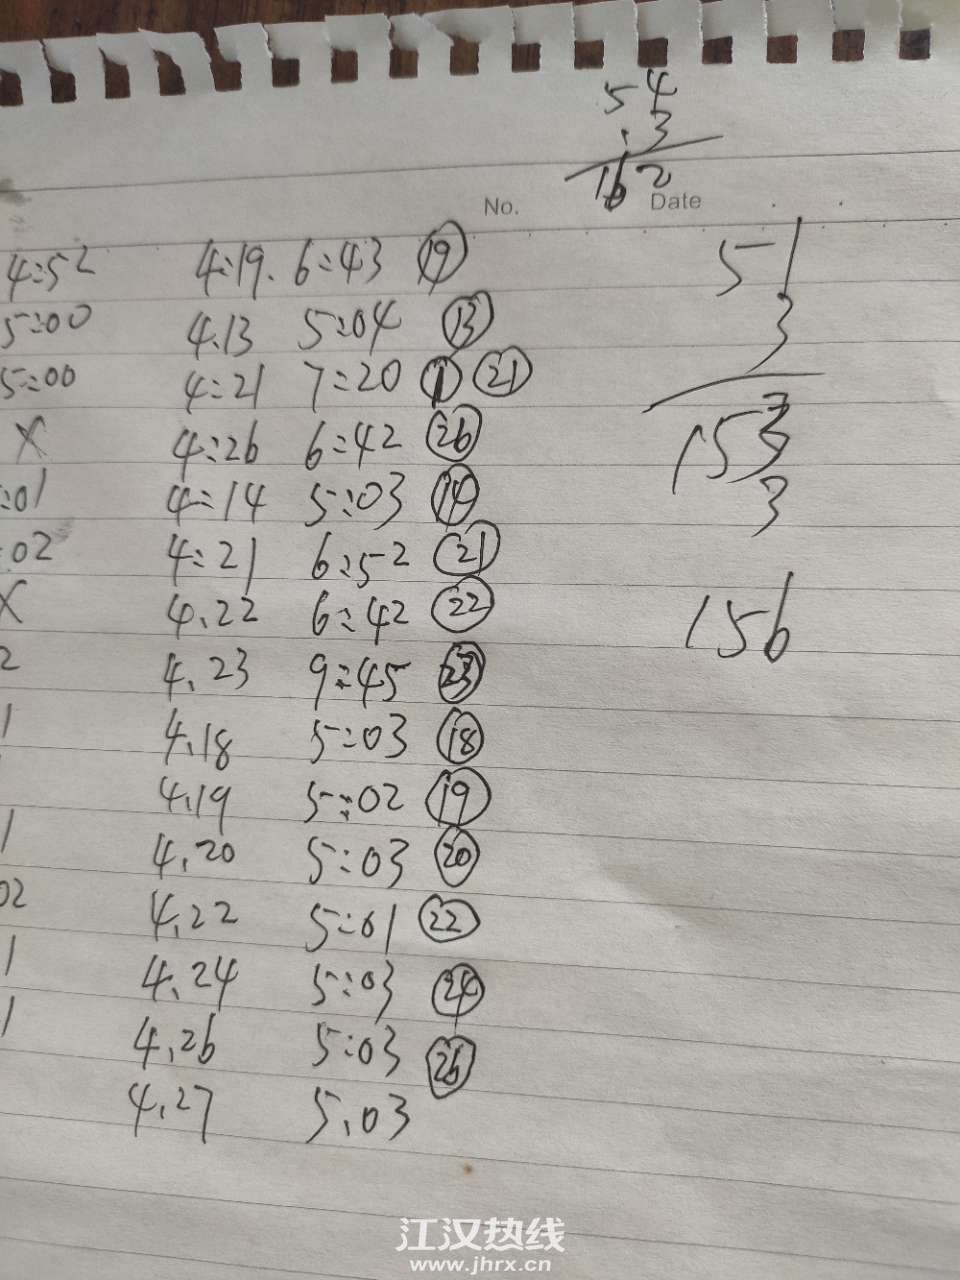 54
.3
162
No. Date
4:52 4:19. 6:43 19
5:00 4.13 5:04 13
5:00 4:21 7:20 1 21
X 4:26 6:42 26
:01 4:14 5:03 14
:02 4:21 6:52 21
X 4.22 6:42 22
2 4.23 9:45 23
1 4.18 5:03 18
4.19 5:02 19
1 4.20 5:03 20
02 4.22 5:01 22
1 4.24 5:03 24
1 4.26 5:03 26
4.27 5.03
51
3
153
3
156
江汉热线
www.jhrx.cn